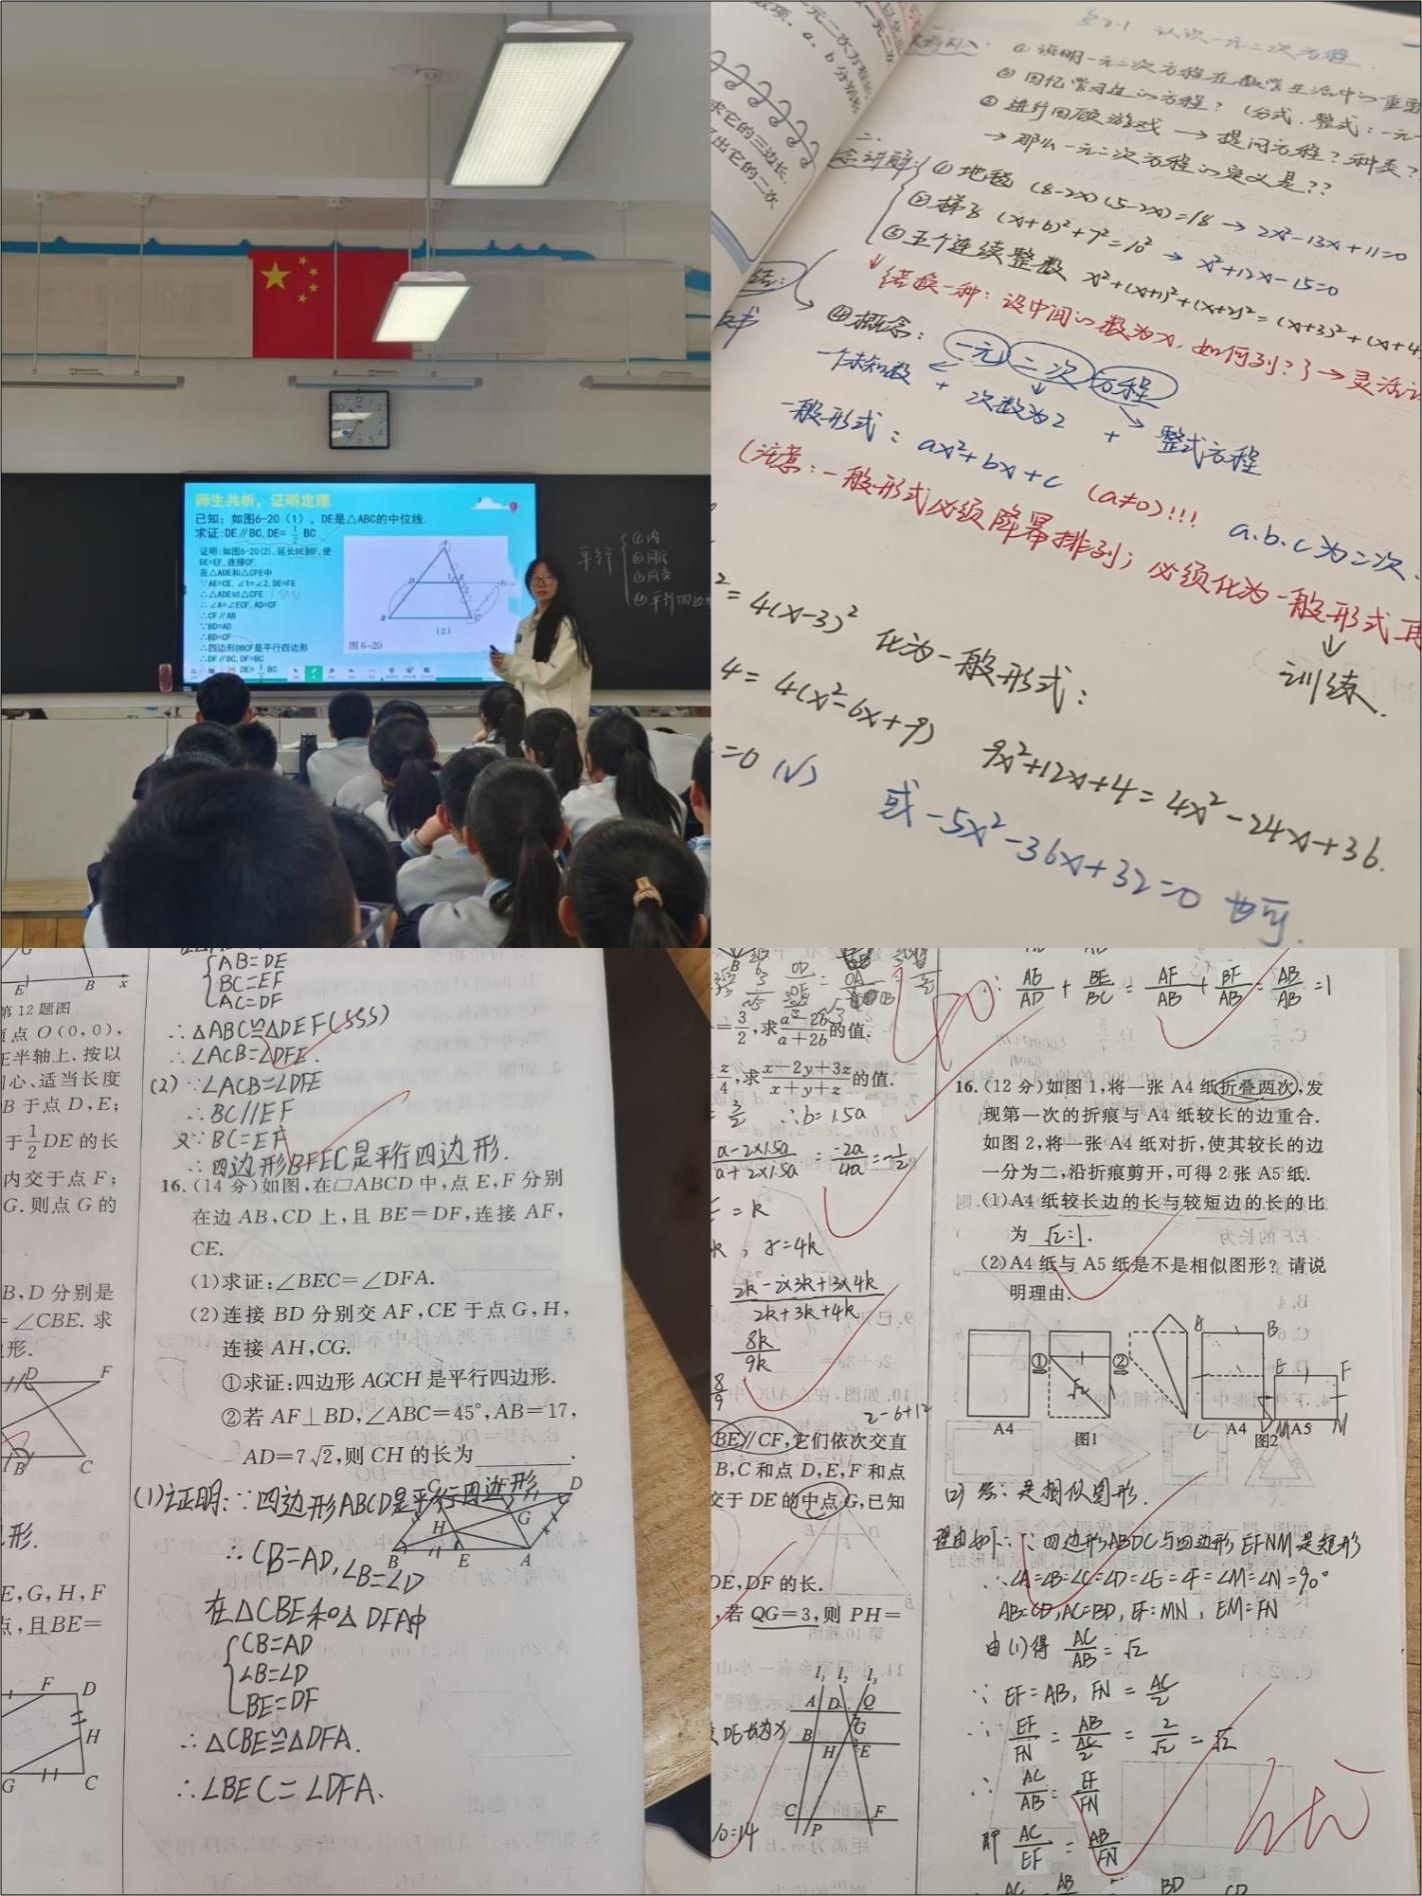 师生共析，证明定理
已知：如图6-20（1），DE是△ABC的中位线.
求证:DE∥BC,DE=1/2 BC
证明:如图6-20(2),延长DE到F,使
DE=EF,连接CF.
在△ADE和△CFE中
∵AE=CE,∠1=∠2,DE=FE
∴△ADE≌△CFE
∴∠A=∠ECF,AD=CF
∴CF∥AB
∵BD=AD
∴BD=CF
∴四边形DBCF是平行四边形
∴DF∥BC,DF=BC
DE=1/2 BC
(2)
图6-20
平行
①内
④平行四边
求它的三边长.
出它的二次
§2.1 认识一元二次方程
① 说明一元二次方程在数学生活中的重要
② 回忆学习过的方程？(分式.整式:一元一
③ 进行回顾游戏 → 提问方程？种类？
→ 那么一元二次方程的定义是??
念讲解:
① 地毯 (8-2x)(5-2x)=18 → 2x²-13x+11=0
② 梯子 (x+6)²+7²=10² → x²+12x-15=0
③ 五个连续整数 x²+(x+1)²+(x+2)²=(x+3)²+(x+4
↓ {若换一种：设中间的数为x,如何列?} → 灵活
④ 概念： 一元 二次 方程
一个未知数 + 次数为2 + 整式方程
一般形式：ax²+bx+c (a≠0)!!! a.b.c为二次、
(注意：一般形式必须降幂排列；必须化为一般形式再
↓
训练.
²=4(x-3)² 化为一般形式：
4=4(x²-6x+9) 9x²+12x+4=4x²-24x+36.
=0 (√) 或-5x²-36x+32=0 也可.
G
E B x
第12题图
点O(0,0),
正半轴上.按以
心、适当长度
B于点D,E;
于1/2DE的长
内交于点F;
G.则点G的
B,D分别是
=∠CBE.求
形.
D F
B C
形.
E,G,H,F
点,且BE=
F D
H
G C
AB=DE
BC=EF
AC=DF
∴△ABC≌△DEF(SSS)
∴∠ACB=∠DFE.
(2) ∵∠ACB=∠DFE
∴BC//EF
又∵BC=EF
∴四边形BFEC是平行四边形.
16.(14分)如图,在▱ABCD中,点E,F分别
在边AB,CD上,且BE=DF,连接AF,
CE.
(1)求证:∠BEC=∠DFA.
(2)连接BD分别交AF,CE于点G,H,
连接AH,CG.
①求证:四边形AGCH是平行四边形.
②若AF⊥BD,∠ABC=45°,AB=17,
AD=7√2,则CH的长为________.
(1)证明:∵四边形ABCD是平行四边形
D
H G
B E A
∴CB=AD,∠B=∠D
在△CBE和△DFA中
CB=AD
∠B=∠D
BE=DF
∴△CBE≌△DFA.
∴∠BEC=∠DFA.
=3/2,求(a-2b)/(a+2b)的值.
z/4,求(x-2y+3z)/(x+y+z)的值.
∴b=1.5a
(a-2×1.5a)/(a+2×1.5a)=-2a/4a=-1/2
=k
k; z=4k
(2k-2×3k+3×4k)/(2k+3k+4k)
8k/9k
8/9
2-6+12
BE//CF,它们依次交直
B,C和点D,E,F和点
交于DE的中点G,已知
DE,DF的长.
,若QG=3,则PH=
l₁ l₂ l₃
A D Q
G
B H E
C P F
10=14
∵ AE/AD + BE/BC = AF/AB + BF/AB = AB/AB =1
16.(12分)如图1,将一张A4纸折叠两次,发
现第一次的折痕与A4纸较长的边重合.
如图2,将一张A4纸对折,使其较长的边
一分为二,沿折痕剪开,可得2张A5纸.
(1)A4纸较长边的长与较短边的长的比
为 √2:1.
(2)A4纸与A5纸是不是相似图形？请说
明理由.
① ② A B
E F
√2
A4 图1 C A4 图2 A5 M
(2) 答:是相似图形.
理由如下:∵四边形ABDC与四边形EFNM是矩形
∴∠A=∠B=∠C=∠D=∠E=∠F=∠M=∠N=90°
AB=CD,AC=BD,EF=MN,EM=FN
由(1)得 AC/AB=√2
∵EF=AB,FN=AC/2
∴EF/FN=AB/(AC/2)=2/√2=√2
∴AC/AB=EF/FN
即 AC/EF=AB/FN